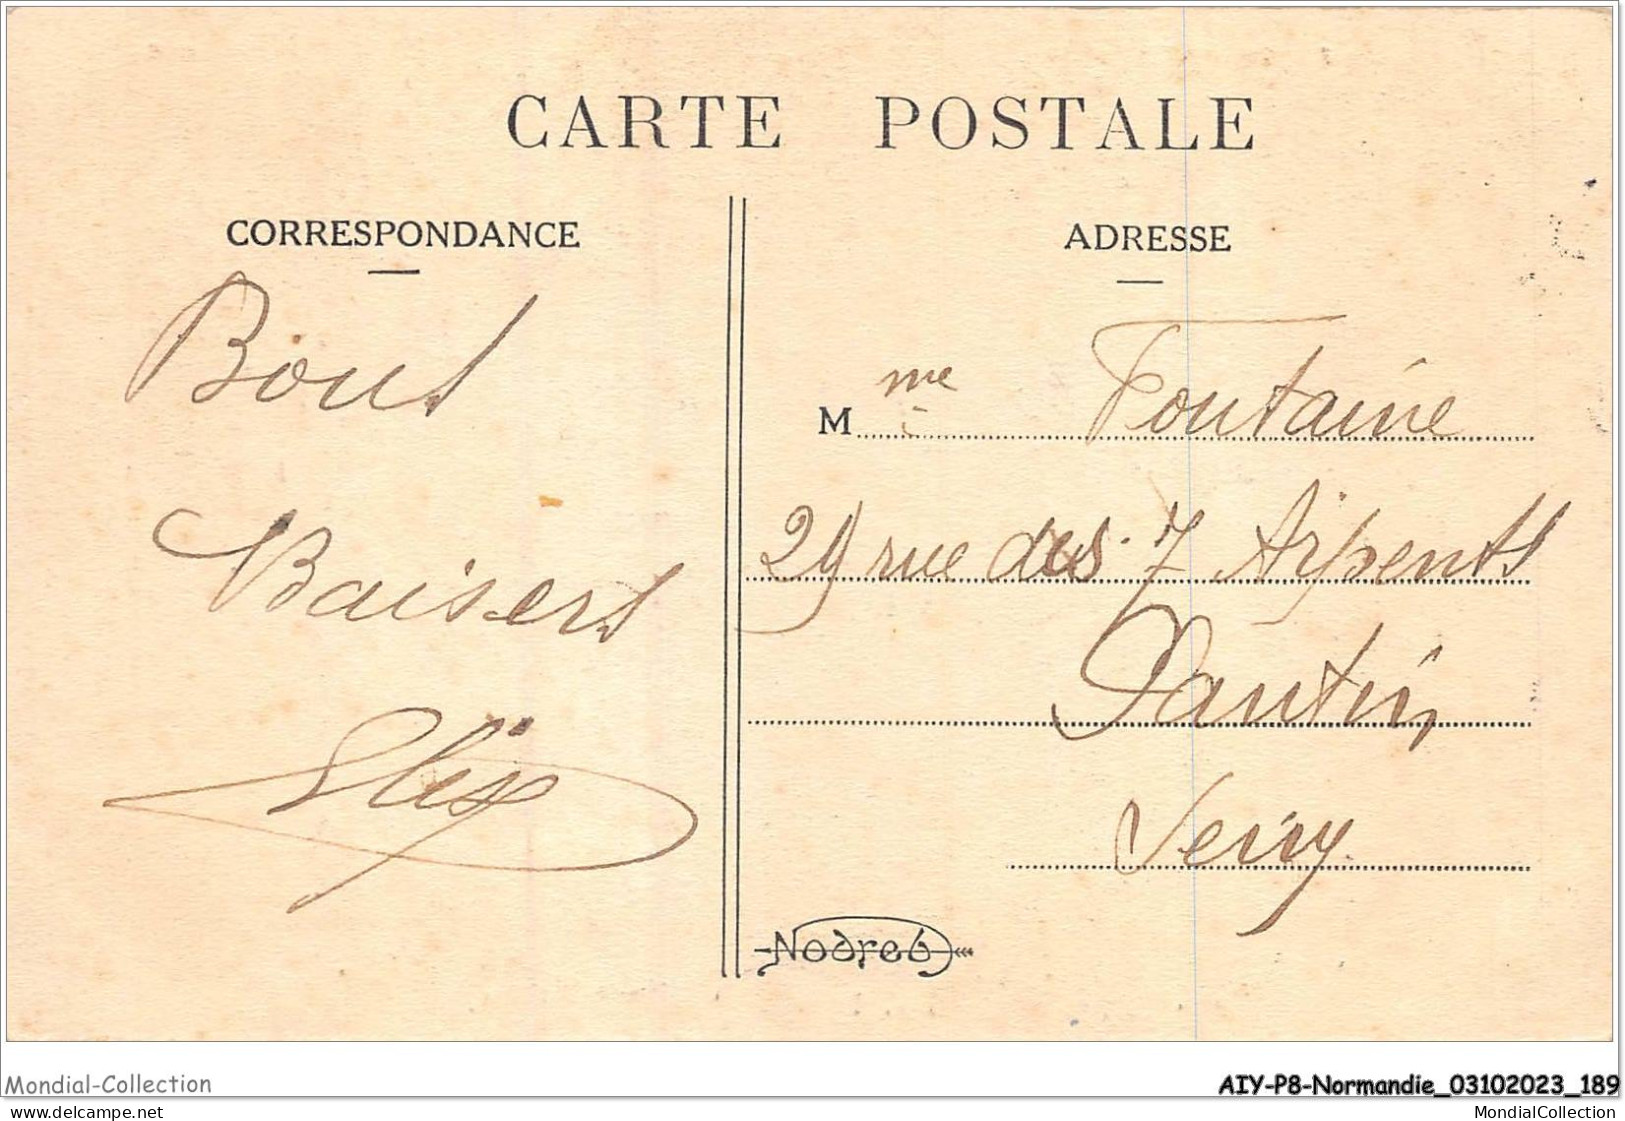 CARTE POSTALE
CORRESPONDANCE
Bons
Baisers
ADRESSE
Mme Fontaine
29 rue des 7 Arpents
Pantin
Seine
Nodreb
Mondial-Collection
AIY-P8-Normandie_03102023_189
delcampe.net
MondialCollection